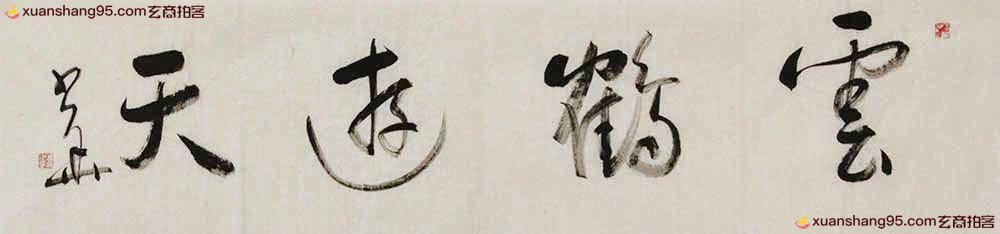 xuanshang95.com玄商拍客
雲鶴遊天
xuanshang95.com玄商拍客